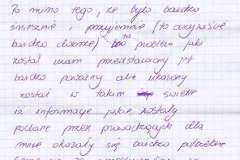 Po mimo tego, że było bardzo
śmiesznie i przyjemnie (to oczywiście
bardzo dobrze) to problem jaki
został nam przedstawiony jest
bardzo poważny ale ukazany
został w takim świetle
iż informacje jakie zostały
podane przez prowadzących dla
mnie okazały się bardzo potrzebne